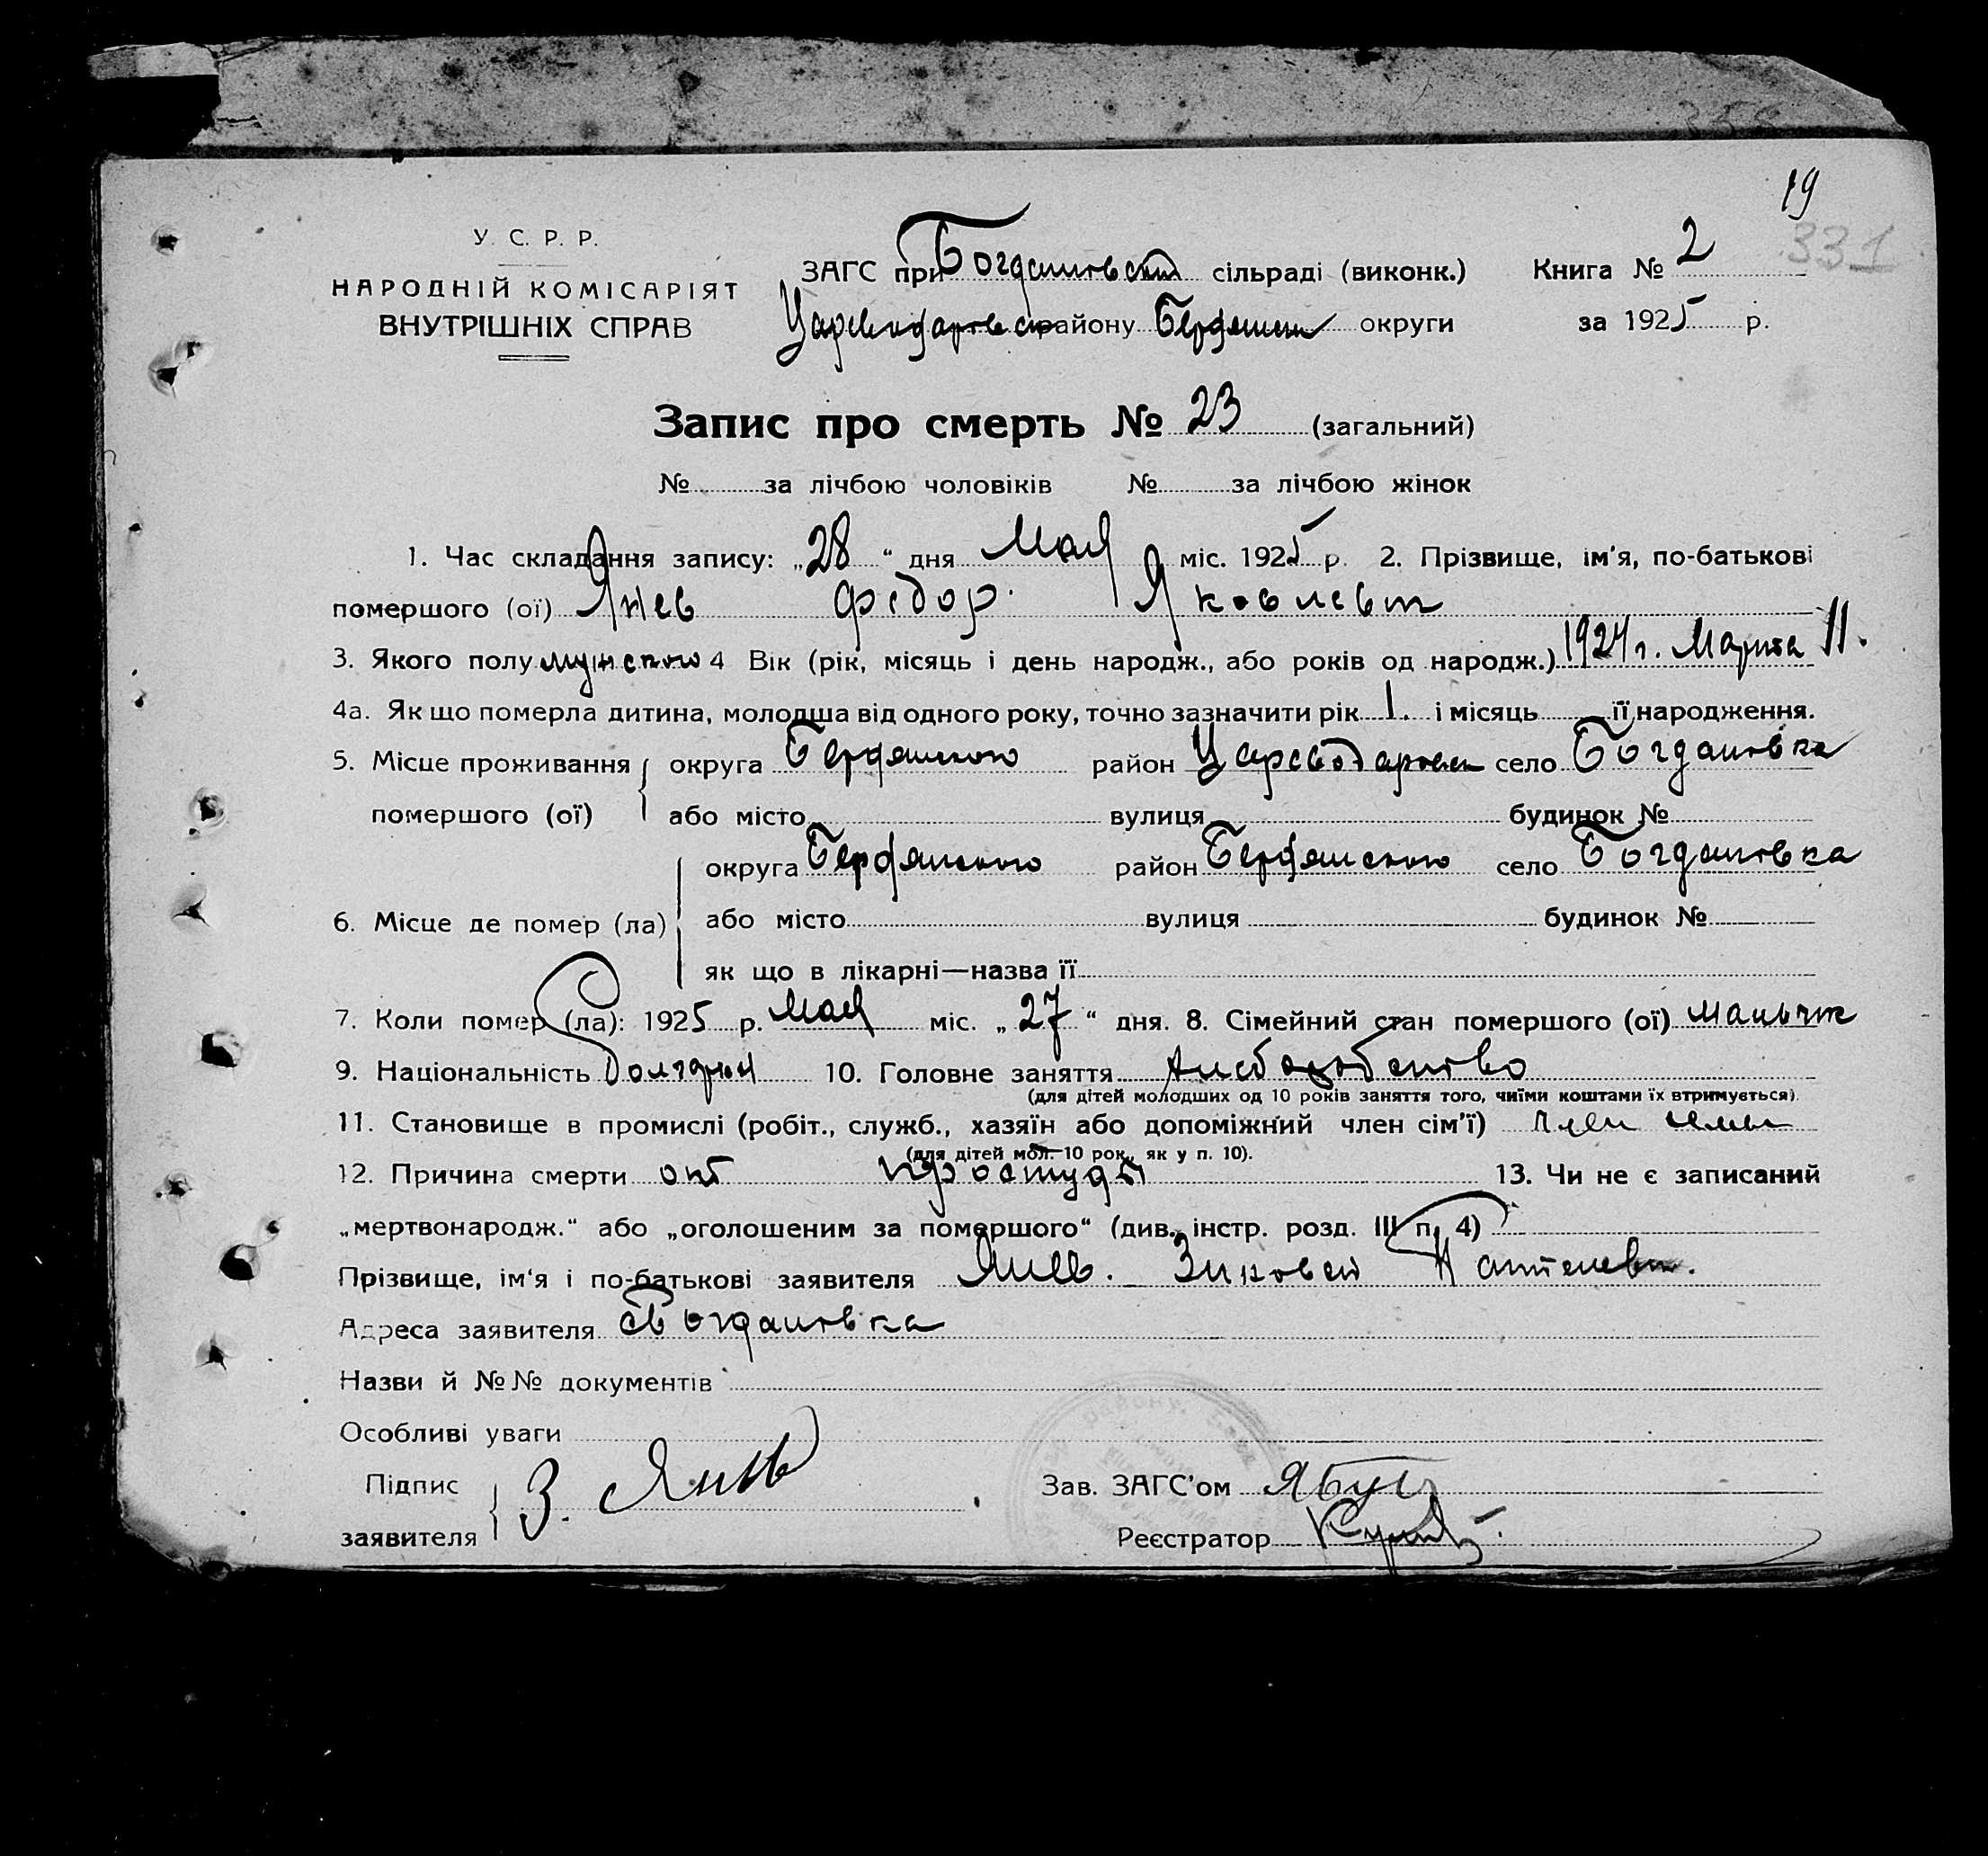 19
331
У. С. Р. Р.
НАРОДНІЙ КОМІСАРІЯТ
ВНУТРІШНІХ СПРАВ
ЗАГС при Богдановской сільраді (виконк.) Книга № 2
району Бердянск округи за 1925 р.
Запис про смерть № 23 (загальний)
№ за лічбою чоловіків № за лічбою жінок
1. Час складання запису: „28“ дня Мая міс. 1925 р. 2. Прізвище, ім'я, по-батькові
помершого (ої) Янев Федор Яковлевич
3. Якого полу мужского 4 Вік (рік, місяць і день народж., або років од народж.) 1924 г. Марта 11.
4а. Як що померла дитина, молодша від одного року, точно зазначити рік 1. і місяць її народження.
5. Місце проживання округа Бердянского район Цареводаровск село Богдановка
помершого (ої) або місто вулиця будинок №
округа Бердянского район Бердянского село Богдановка
6. Місце де помер (ла) або місто вулиця будинок №
як що в лікарні—назва її
7. Коли помер (ла): 1925 р. Мая міс. „27“ дня. 8. Сімейний стан помершого (ої) мальчик
9. Національність Болгарин 10. Головне заняття Хлебопашество
(для дітей молодших од 10 років заняття того, чиїми коштами їх втримується)
11. Становище в промислі (робіт., служб., хазяїн або допоміжний член сім'ї)
(для дітей мол. 10 рок., як у п. 10).
12. Причина смерти от простуды 13. Чи не є записаний
„мертвонародж.“ або „оголошеним за помершого“ (див. інстр. розд. III п. 4)
Прізвище, ім'я і по-батькові заявителя Янев. Зиновей
Адреса заявителя Богдановка
Назви й №№ документів
Особливі уваги
Підпис
заявителя З. Янев
Зав. ЗАГС'ом
Реєстратор